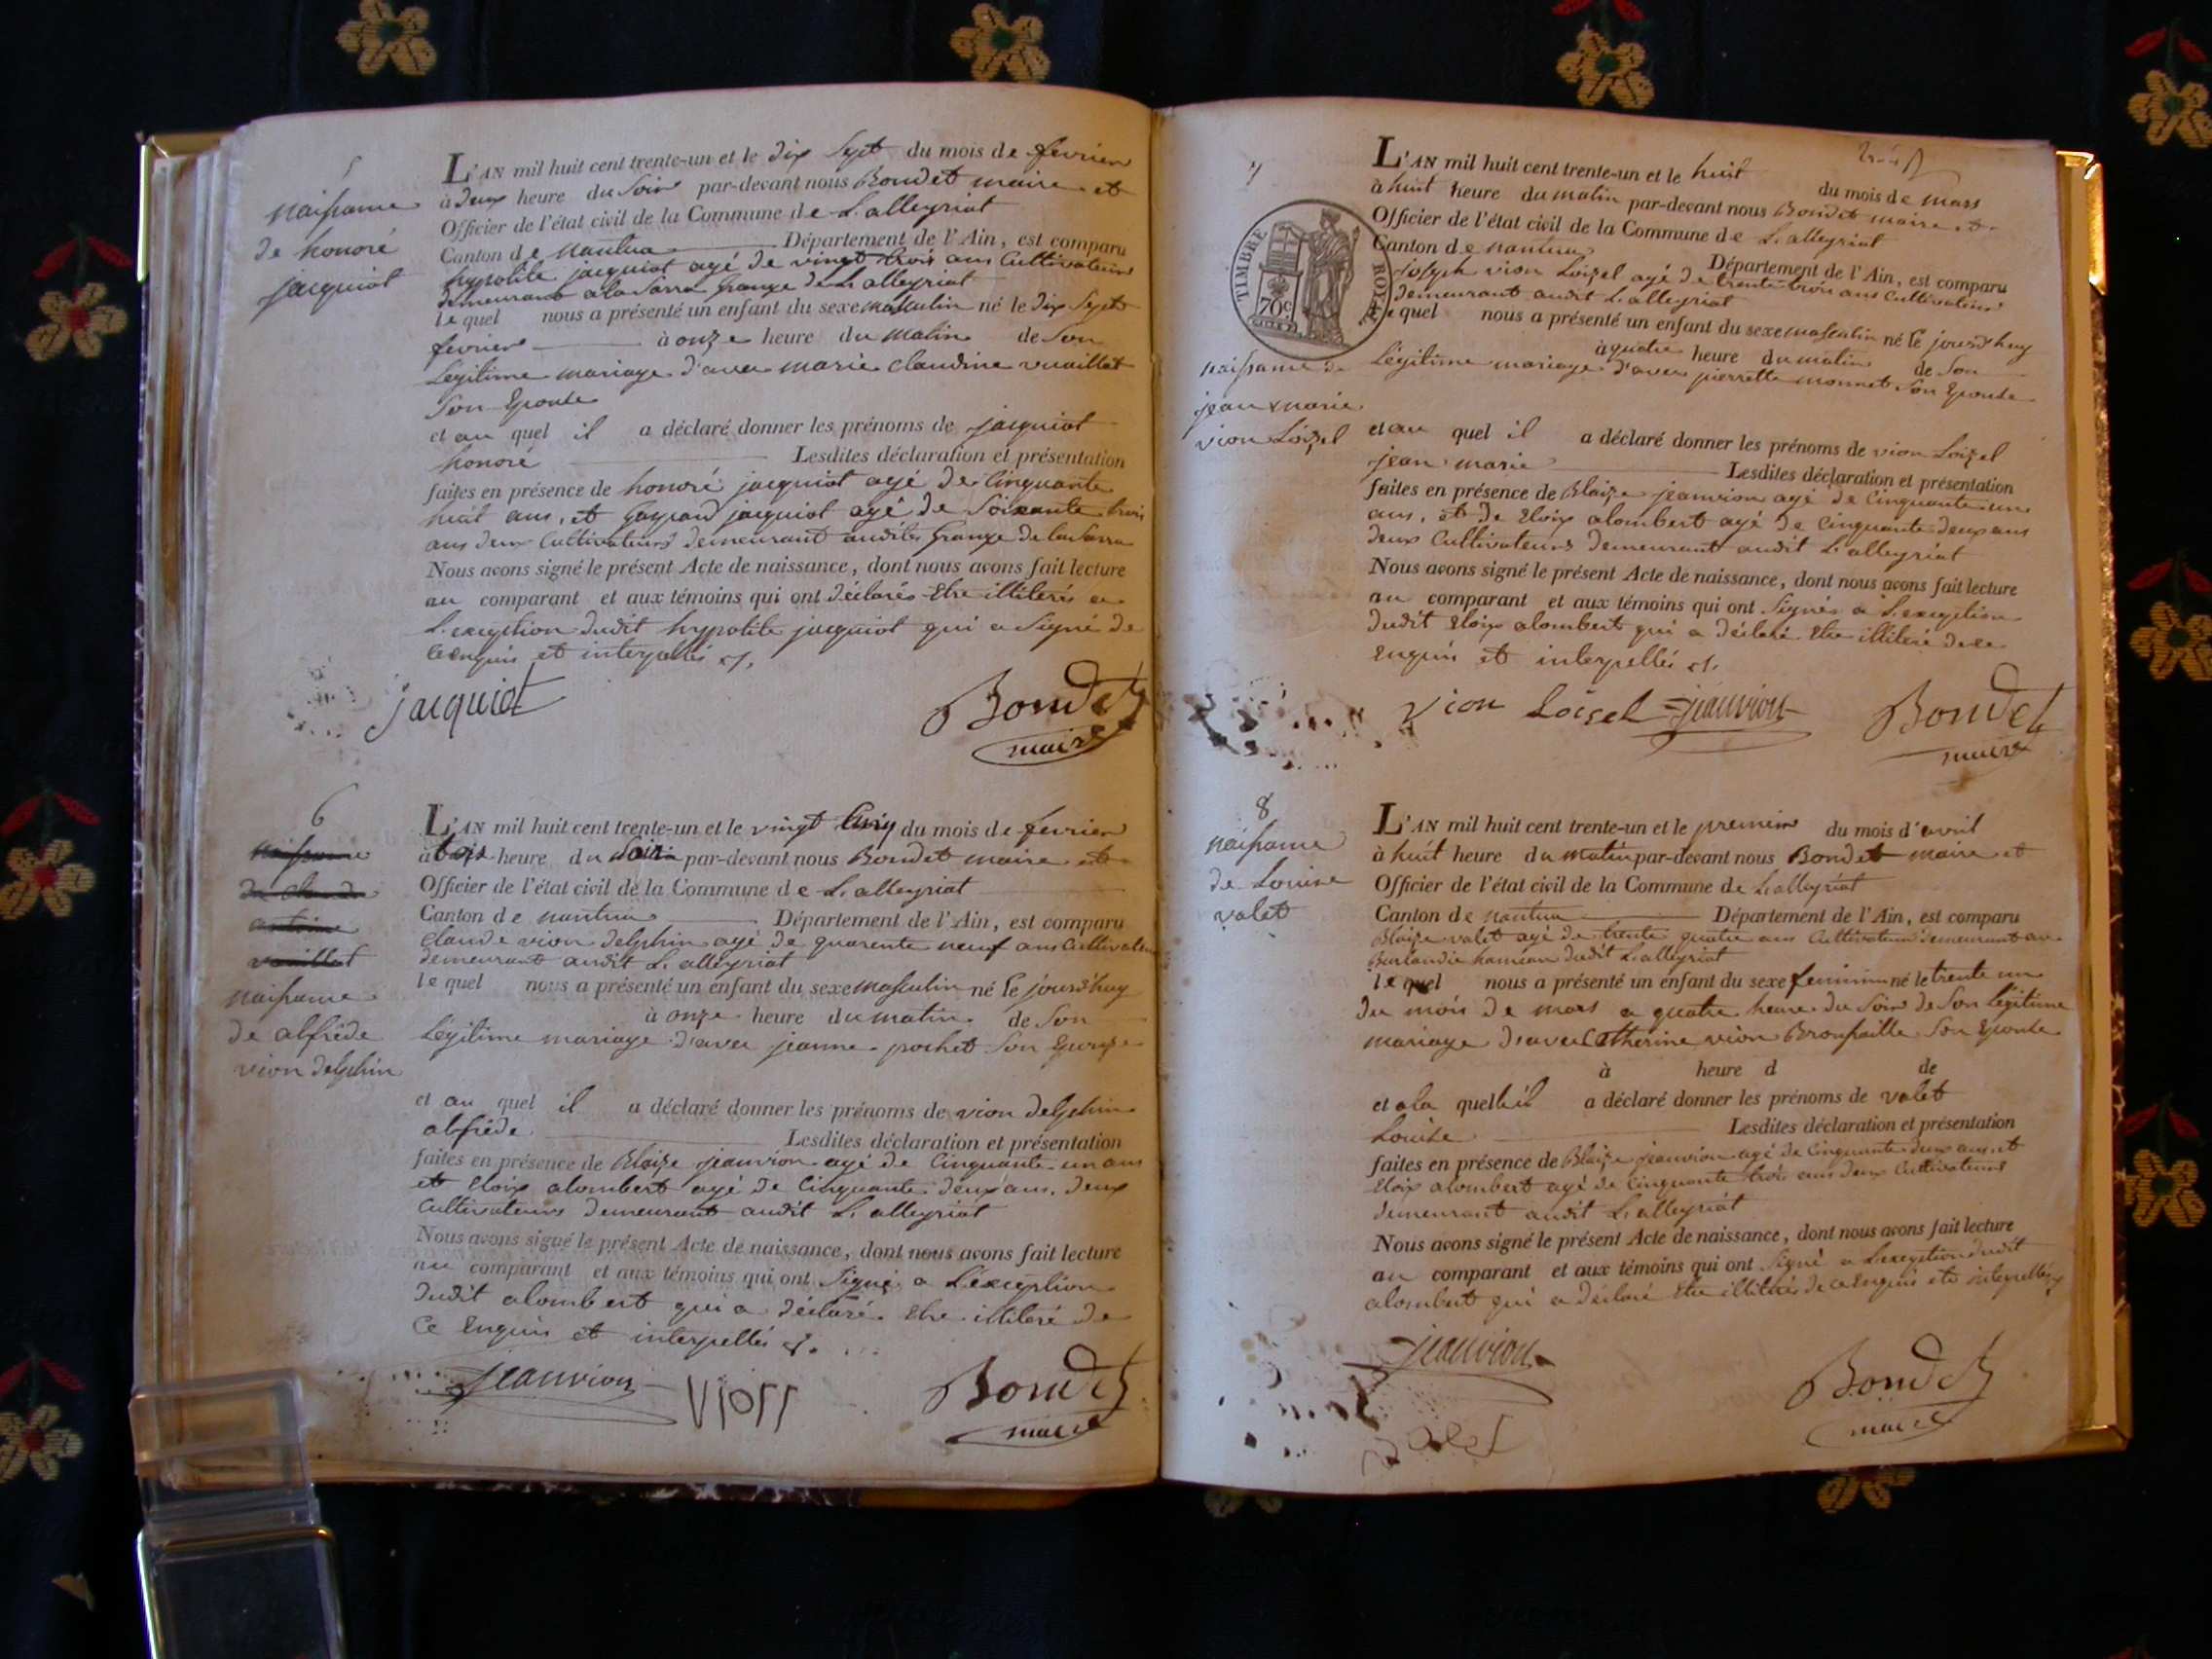 5
naissance
de honoré
jacquiot
L'AN mil huit cent trente-un et le dix Sept du mois de fevrier
à deux heure du Soir par-devant nous Bondet maire et
Officier de l'état civil de la Commune de L. alleyriat
Canton de nantua Département de l'Ain, est comparu
hypolite jacquiot agé de vingt trois ans Cultivateur
demeurant a la Sarra grange de L. alleyriat
lequel nous a présenté un enfant du sexe masculin né le dix Sept
fevrier à onze heure du matin de Son
Légitime mariage d'avec marie claudine vuaillat
Son Epouse
et au quel il a déclaré donner les prénoms de jacquiot
honoré Lesdites déclaration et présentation
faites en présence de honoré jacquiot agé de Cinquante
huit ans, et gaspard jacquiot agé de Soixante trois
ans deux Cultivateurs demeurant audites grange de la Sarra
Nous avons signé le présent Acte de naissance, dont nous avons fait lecture
au comparant et aux témoins qui ont déclarés Etre illiterés a
L'exception dudit hypolite jacquiot qui a Signé de
ce enquis et interpellés
jacquiot
Bondet
maire
6
naissance
de claude
antoine
vuaillat
naissance
de alfréde
vion delphin
L'AN mil huit cent trente-un et le vingt Cinq du mois de fevrier
à trois heure du Soir par-devant nous Bondet maire et
Officier de l'état civil de la Commune de L. alleyriat
Canton de nantua Département de l'Ain, est comparu
claude vion delphin agé de quarente neuf ans Cultivateur
demeurant audit L. alleyriat
lequel nous a présenté un enfant du sexe masculin né le jourd'huy
à onze heure du matin de Son
Légitime mariage d'avec jeanne pochet Son Epouse
et au quel il a déclaré donner les prénoms de vion delphin
alfréde Lesdites déclaration et présentation
faites en présence de Blaize jeanvion agé de Cinquante un ans
et Eloix alombert agé de Cinquante deux ans, deux
Cultivateurs demeurant audit L. alleyriat
Nous avons signé le présent Acte de naissance, dont nous avons fait lecture
au comparant et aux témoins qui ont Signé a L'exception
dudit alombert qui a déclaré Etre illiteré de
Ce Enquis et interpellés
jeanvion
vion
Bondet
maire
7
TIMBRE ROYAL
70c
naissance de
jean marie
vion Loizel
L'AN mil huit cent trente-un et le huit du mois de mars
à huit heure du matin par-devant nous Bondet maire et
Officier de l'état civil de la Commune de L. alleyriat
Canton de nantua Département de l'Ain, est comparu
joseph vion Loizel agé de trente trois ans Cultivateur
demeurant audit L. alleyriat
lequel nous a présenté un enfant du sexe masculin né le jourd'huy
à quatre heure du matin de Son
Légitime mariage d'avec pierrette monnet Son Epouse
et au quel il a déclaré donner les prénoms de vion Loizel
jean marie Lesdites déclaration et présentation
faites en présence de Blaize jeanvion agé de Cinquante un
ans, et de Eloix alombert agé de Cinquante deux ans
deux Cultivateurs demeurant audit L. alleyriat
Nous avons signé le présent Acte de naissance, dont nous avons fait lecture
au comparant et aux témoins qui ont Signés a L'exception
dudit Eloix alombert qui a déclaré Etre illiteré de ce
Enquis et interpellés
vion Loisel jeanvion
Bondet
maire
8
naissance
de Louise
valet
L'AN mil huit cent trente-un et le premier du mois d'avril
à huit heure du matin par-devant nous Bondet maire et
Officier de l'état civil de la Commune de L. alleyriat
Canton de nantua Département de l'Ain, est comparu
Blaize valet agé de trente quatre ans Cultivateur demeurant au
Burlandie hameau dudit L. alleyriat
lequel nous a présenté un enfant du sexe feminin né le trente un
du mois de mars a quatre heure du Soir de Son Légitime
mariage d'avec Catherine vion Bronsaille Son Epouse
à heure d de
et a la quelle il a déclaré donner les prénoms de valet
Louise Lesdites déclaration et présentation
faites en présence de Blaize jeanvion agé de Cinquante deux ans et
Eloix alombert agé de Cinquante trois ans deux Cultivateurs
demeurant audit L. alleyriat
Nous avons signé le présent Acte de naissance, dont nous avons fait lecture
au comparant et aux témoins qui ont Signé a L'exception dudit
alombert qui a déclaré Etre illiteré de ce Enquis et interpellés
jeanvion
valet
Bondet
maire